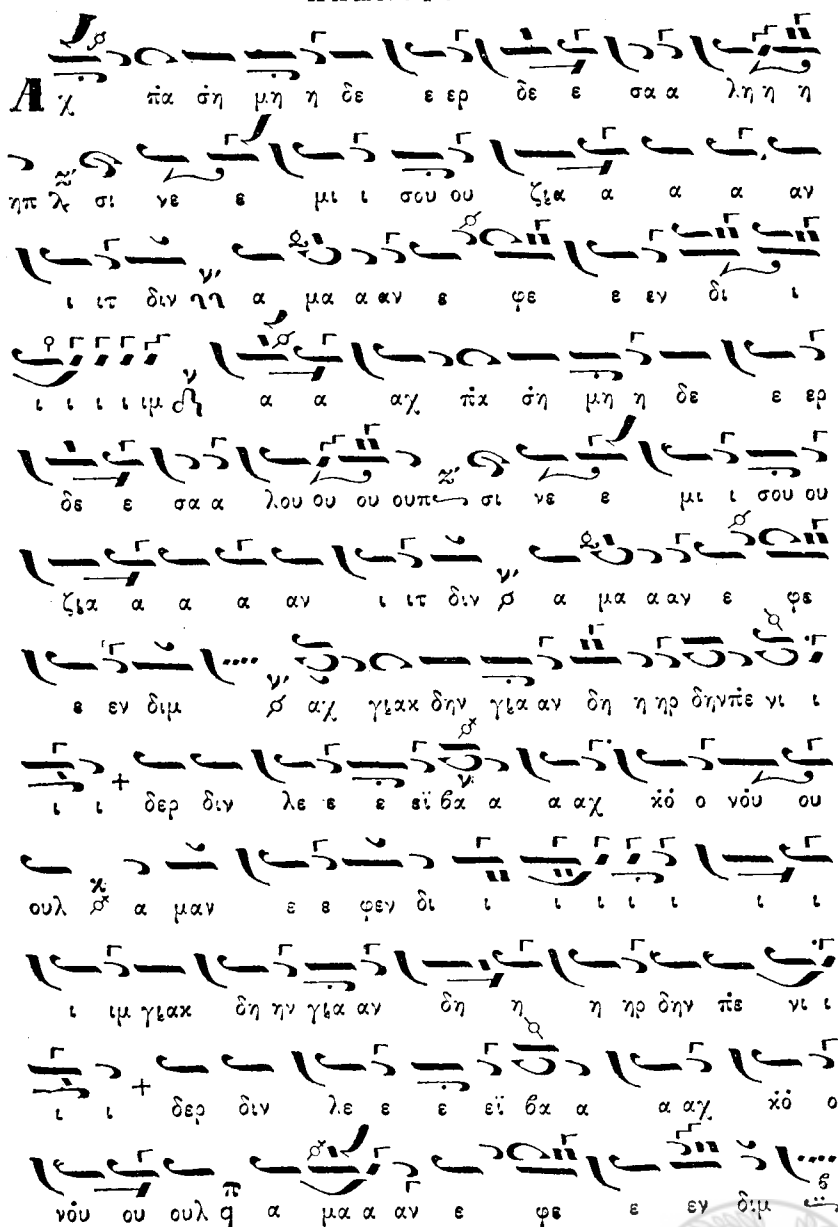 Α χ π̇α σ̇η μη η δε ε ερ δε ε σα α λη η η
ηπ λ σι νε ε μι ι σου ου ζια α α α αν
ι ιτ διν α μα α αν ε φε ε εν δι ι
ι ι ι ι ιμ α α αχ π̇α σ̇η μη η δε ε ερ
δε ε σα α λου ου ου ουπ σι νε ε μι ι σου ου
ζια α α α αν ι ιτ διν α μα α αν ε φε
ε εν διμ αχ γιακ δην για αν δη η ηρ δην π̇ε νι ι
ι ι δερ διν λε ε ε εϊ βα α α αχ κ̇ο ο νου ου
ουλ α μαν ε ε φεν δι ι ι ι ι ι ι ι
ι ιμ γιακ δη ην για αν δη η η ηρ δην π̇ε νι ι
ι ι δερ διν λε ε ε εϊ βα α α αχ κ̇ο ο
νου ου ουλ α μα α αν ε φε ε εν διμ